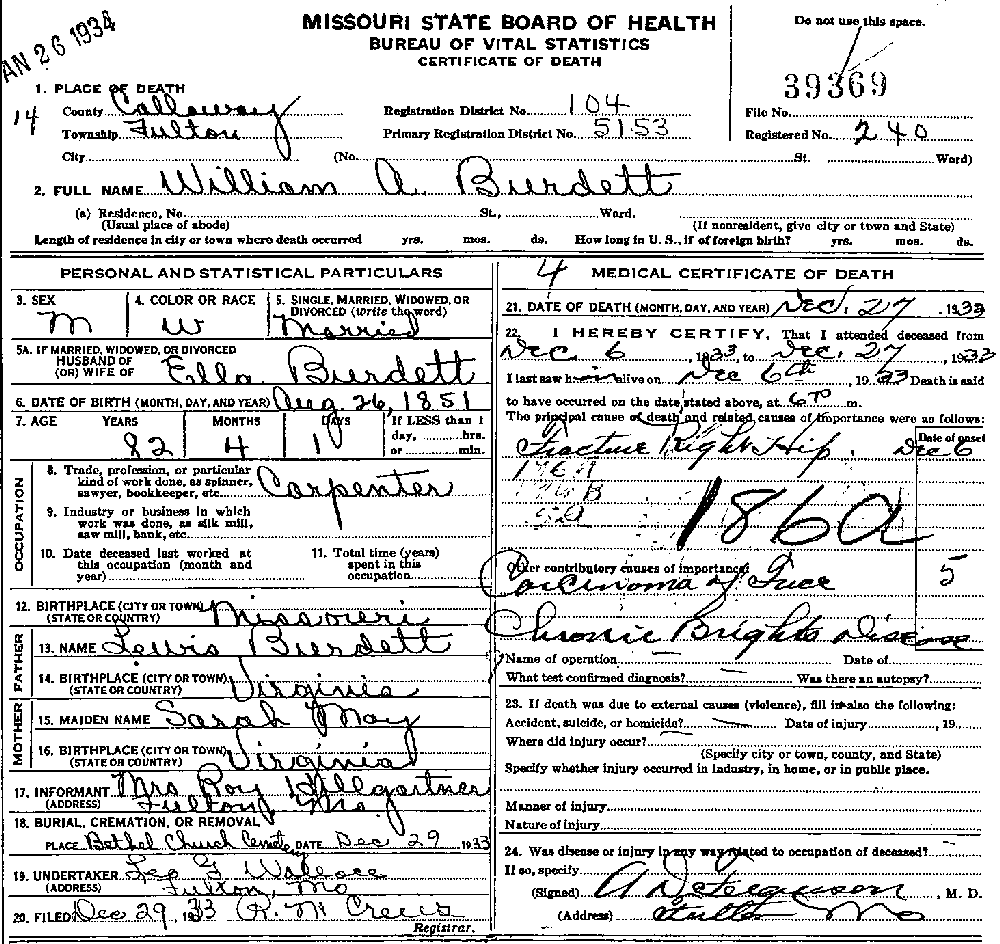 AN 26 1934
MISSOURI STATE BOARD OF HEALTH
BUREAU OF VITAL STATISTICS
CERTIFICATE OF DEATH
Do not use this space.
39369
1. PLACE OF DEATH
14
County Callaway Registration District No. 104 File No.
Township Fulton Primary Registration District No. 5153 Registered No. 240
City (No. St. Ward)
2. FULL NAME William A. Burdett
(a) Residence, No. St., Ward.
(Usual place of abode) (If nonresident, give city or town and State)
Length of residence in city or town where death occurred yrs. mos. ds. How long in U. S., if of foreign birth? yrs. mos. ds.
PERSONAL AND STATISTICAL PARTICULARS
3. SEX 4. COLOR OR RACE 5. SINGLE, MARRIED, WIDOWED, OR
DIVORCED (write the word)
M W Married
5A. IF MARRIED, WIDOWED, OR DIVORCED
HUSBAND OF
(OR) WIFE OF Ella Burdett
6. DATE OF BIRTH (MONTH, DAY, AND YEAR) Aug 26, 1851
7. AGE YEARS MONTHS DAYS If LESS than 1
day, hrs.
or min.
82 4 1
OCCUPATION
8. Trade, profession, or particular
kind of work done, as spinner,
sawyer, bookkeeper, etc. Carpenter
9. Industry or business in which
work was done, as silk mill,
saw mill, bank, etc.
10. Date deceased last worked at
this occupation (month and
year)
11. Total time (years)
spent in this
occupation
12. BIRTHPLACE (CITY OR TOWN)
(STATE OR COUNTRY) Missouri
FATHER
13. NAME Lewis Burdett
14. BIRTHPLACE (CITY OR TOWN)
(STATE OR COUNTRY) Virginia
MOTHER
15. MAIDEN NAME Sarah May
16. BIRTHPLACE (CITY OR TOWN)
(STATE OR COUNTRY) Virginia
17. INFORMANT Mrs Roy Hillgartner
(ADDRESS) Fulton, Mo
18. BURIAL, CREMATION, OR REMOVAL
PLACE Bethel Church DATE Dec 29 1933
19. UNDERTAKER Wallace
(ADDRESS) Fulton, Mo
20. FILED Dec 29, 1933 R. M Crews
Registrar.
4 MEDICAL CERTIFICATE OF DEATH
21. DATE OF DEATH (MONTH, DAY, AND YEAR) Dec. 27, 1933
22. I HEREBY CERTIFY, That I attended deceased from
Dec. 6, 1933, to Dec. 27, 1933
I last saw him alive on Dec 6th, 1933 Death is said
to have occurred on the date stated above, at m.
The principal cause of death and related causes of importance were as follows:
Date of onset
Fracture Right Hip. Dec 6
186a
Other contributory causes of importance:
5
Carcinoma of Face
Chronic Brights Disease
Name of operation Date of
What test confirmed diagnosis? Was there an autopsy?
23. If death was due to external causes (violence), fill in also the following:
Accident, suicide, or homicide? Date of injury , 19
Where did injury occur?
(Specify city or town, county, and State)
Specify whether injury occurred in industry, in home, or in public place.
Manner of injury
Nature of injury
24. Was disease or injury in any way related to occupation of deceased?
If so, specify
(Signed) Ferguson , M. D.
(Address) Fulton Mo